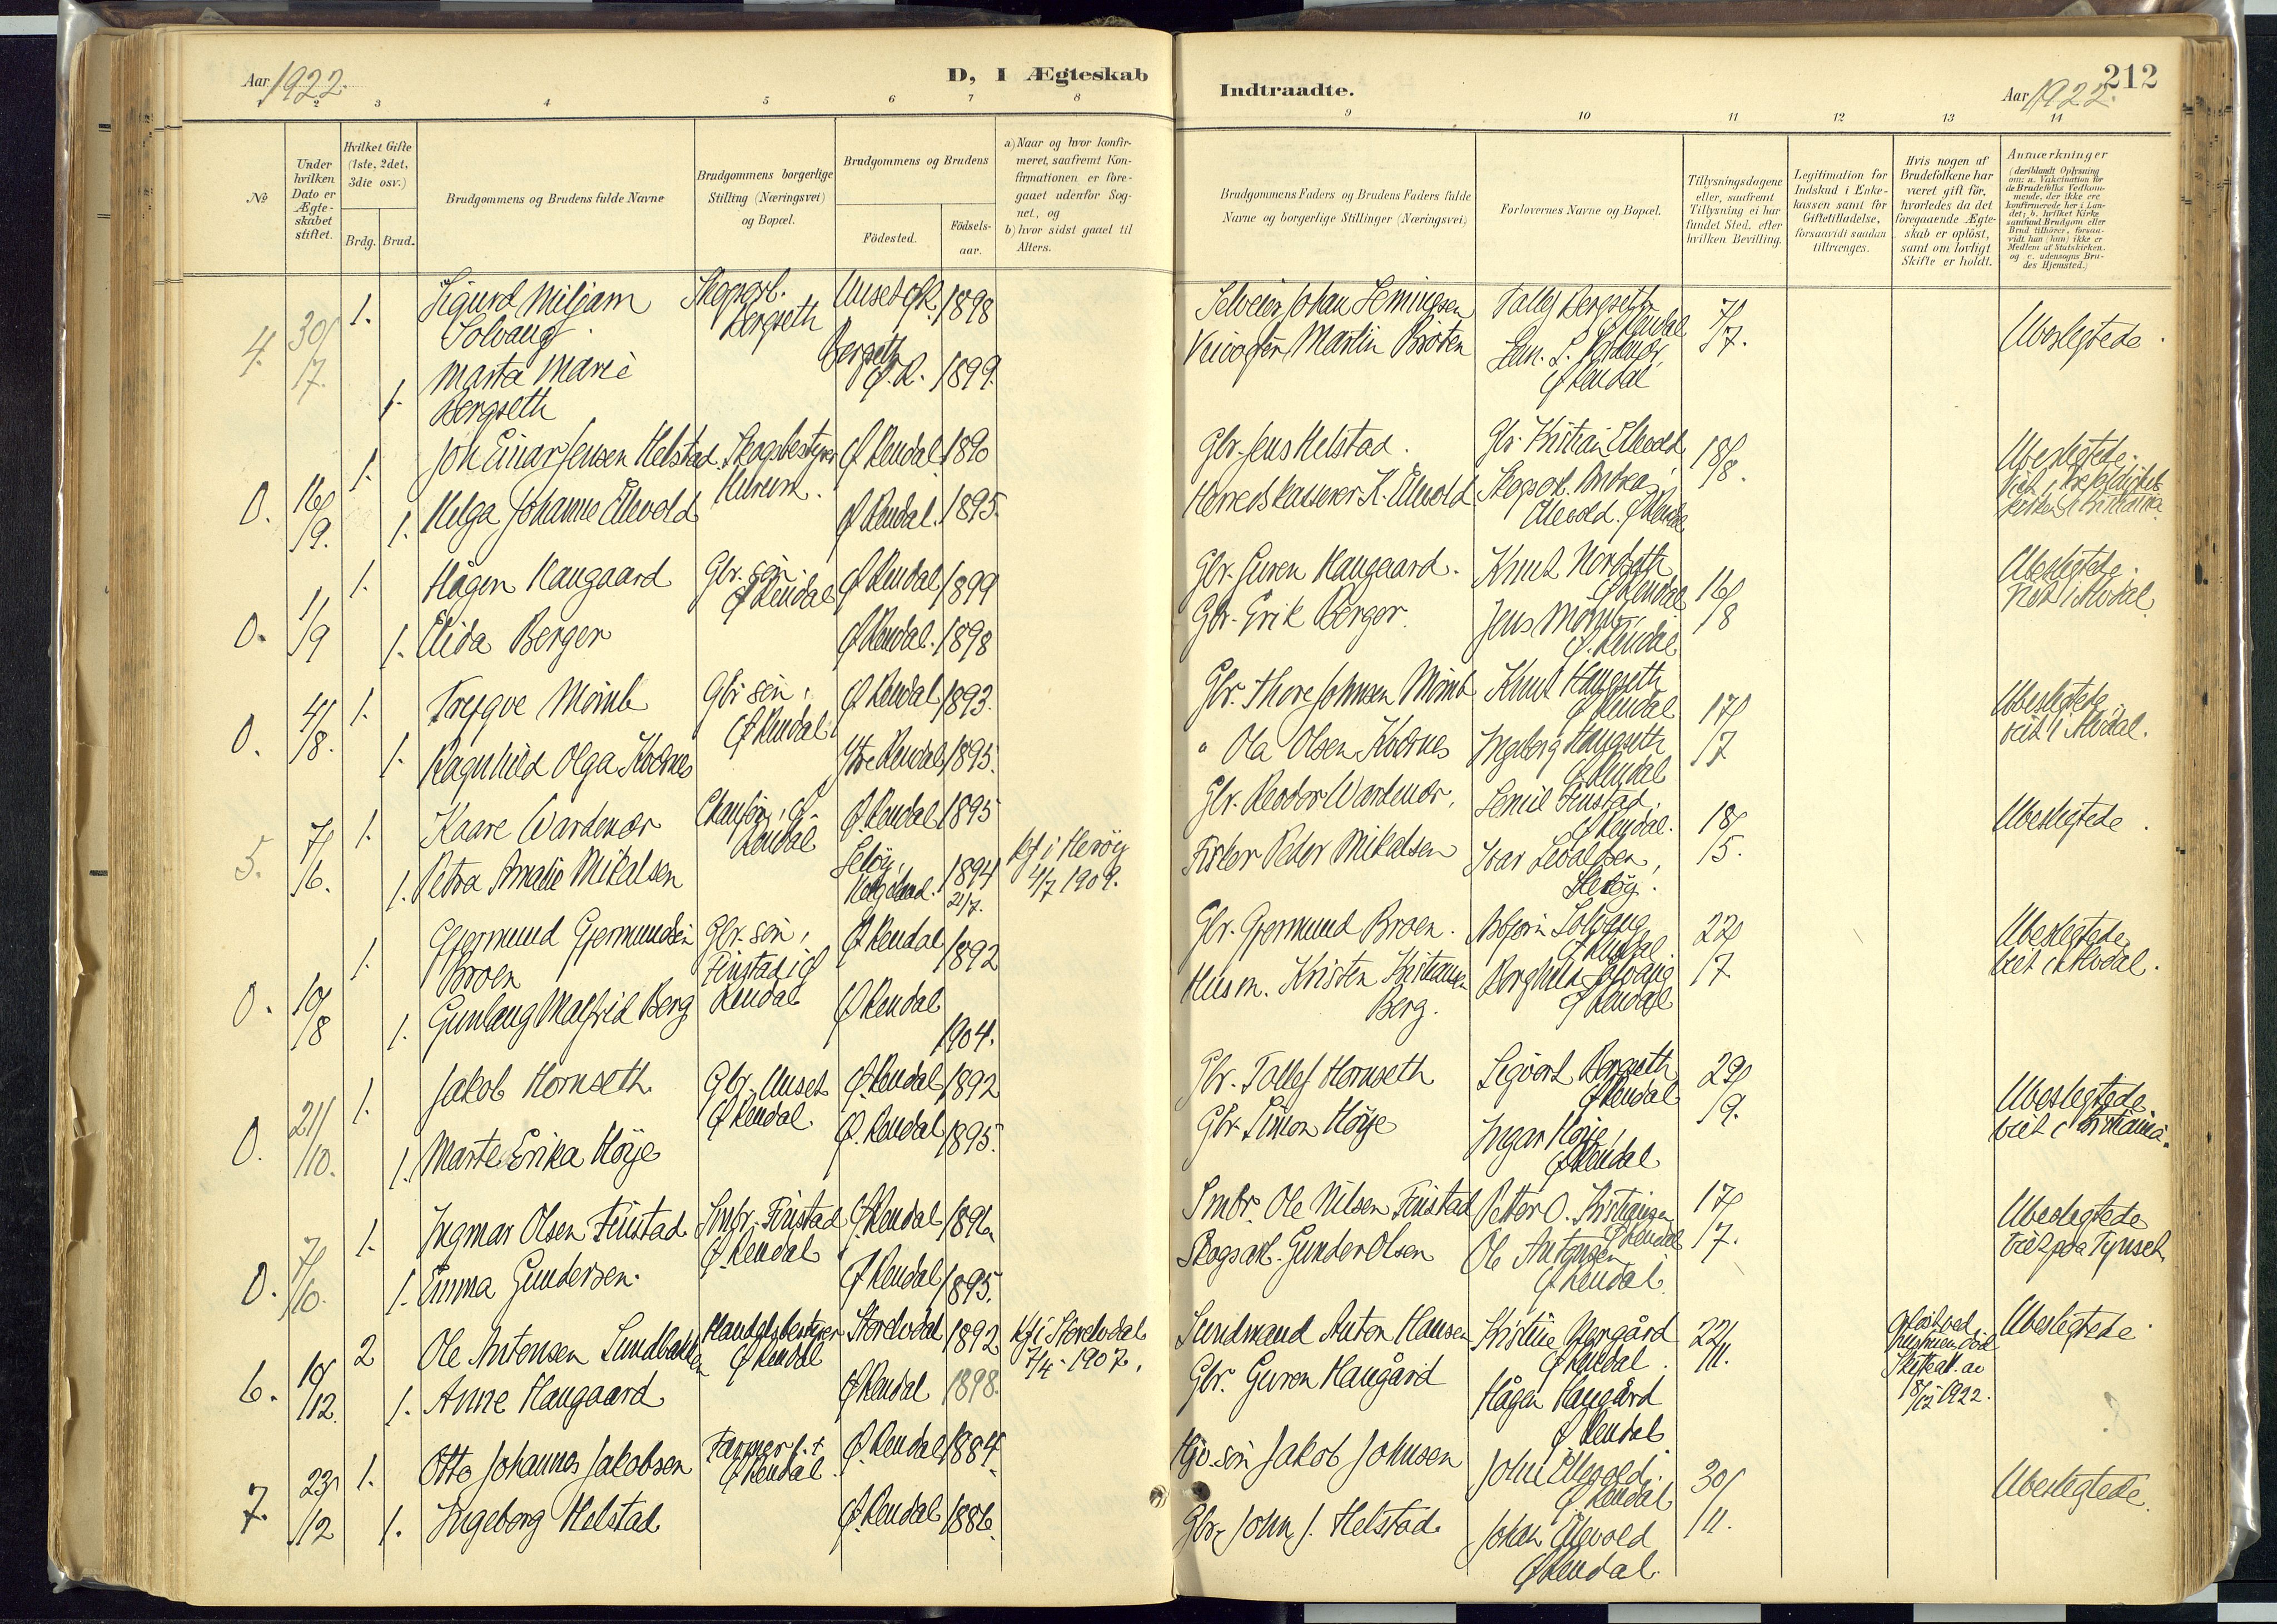 Aar 1922.
D, I Ægteskab
Indtraadte.
Aar 1922.
212
1 2 3 4 5 6 7 8 9 10 11 12 13 14
No
Under hvilken Dato er Ægteskabet stiftet.
Hvilket Gifte (1ste, 2det, 3die osv.)
Brdg. Brud.
Brudgommens og Brudens fulde Navne
Brudgommens borgerlige Stilling (Næringsvei) og Bopæl.
Brudgommens og Brudens
Födested.
Födselsaar.
a) Naar og hvor konfirmeret, saafremt Konfirmationen er foregaaet udenfor Sognet, og
b) hvor sidst gaaet til Alters.
Brudgommens Faders og Brudens Faders fulde Navne og borgerlige Stillinger (Næringsvei)
Forlovernes Navne og Bopæl.
Tillysningsdagene eller, saafremt Tillysning ei har fundet Sted, efter hvilken Bevilling.
Legitimation for Indskud i Enkekassen samt for Giftetilladelse, forsaavidt saadan tiltrænges.
Hvis nogen af Brudefolkene har været gift för, hvorledes da det foregaaende Ægteskab er oplöst, samt om lovligt Skifte er holdt.
Anmærkninger (deriblandt Oplysning om: a. Vakcination for de Brudefolks Vedkommende, der ikke ere konfirmerede her i Landet; b. hvilket Kirkesamfund Brudgom eller Brud tilhörer, forsaavidt han (hun) ikke er Medlem af Statskirken. og c. udensogns Brudes Hjemsted.)
4. 30/7. 1. Sigurd Miljam Solvang Skogsarb. Bergseth Unset ØR. 1898 Selveier Johan Hemingsen Tallef Bergseth Ø Rendal 7/7. Ubeslegtede.
1. Marta Marie Bergseth Bergseth Ø.R. 1899. Martin Bröten Ø Rendal
0. 16/9. 1. Joh Einar Jensen Helstad. Skogsbestyrer Hurum. Ø Rendal 1890 Gbr. Jens Helstad. Gbr Kristian Ellevold 18/8. Ubeslegtede.
1. Helga Johanne Ellevold Ø Rendal. 1895. Herredskasserer K. Ellevold Skogsarb. Andrea Ellevold. Ø Rendal
0. 1/9 1. Hågen Haugaard Gbr. sön. Ø Rendal Ø Rendal 1899 Gbr. Guren Haugaard. Knut Nordseth Ø Rendal 16/8 Ubeslegtede. Viet i Alvdal
1. Elida Berger Ø Rendal. 1898 Gbr. Erik Berger. Jens Momb, Ø. Rendal
0. 4/8. 1. Trygve Momb Gbr sön, Ø Rendal Ø Rendal 1893. Gbr. Thore Johnsen Momb Knut Haugseth Ø Rendal 17/7 Ubeslegtede viet i Alvdal.
1. Ragnhild Olga Kvernes Ytre Rendal 1895. " Ola Olsen Kvernes Ingeborg Haugseth Ø Rendal
5. 7/6. 1. Kaare Wardenær Chaufför, Ø. Rendal Ø. Rendal 1895 Gbr. Reodor Wardenær, Semie Finstad, Ø Rendal. 18/5. Ubeslegtede.
1. Petra Amalie Mikalsen Seloy, Helgeland. 1894 21/7. Kf i Heröy 4/7 1909. Fisker Peder Mikalsen Ivar Sevaldsen, Heröy.
0. 10/8 1. Gjermund Gjermundsen Broen Gbr. sön, Finstad i Ø Rendal Ø Rendal 1892 Gbr. Gjermund Broen. Asbjörn Solvang Ø Rendal 22/7 Ubeslegtede, viet i Alvdal.
1. Gunlaug Malfrid Berg Ø Rendal 1904. Husm. Kristen Kristiansen Berg. Borghild Solvang Ø Rendal
0. 21/10. 1. Jakob Hornseth Gbr. Unset Ø Rendal. Ø Rendal 1892 Gbr. Tallef Hornseth Sigvart Bergseth Ø Rendal 29/9. Ubeslegtede, viet i Kristiania.
1. Marte Erika Höye Ø. Rendal 1895. Gbr. Simon Höye Ingar Höye, Ø Rendal
0. 7/10. 1. Ingmar Olsen Finstad Smbr. Finstad Ø. Rendal Ø. Rendal 1896. Smbr. Ole Nilsen Finstad Petter O. Kristiansen Ø Rendal 17/7. Ubeslegtede viet paa Tynset.
1. Emma Gundersen. Ø Rendal 1895. Skogsarb. Gunder Olsen Ole Antonsen Ø Rendal.
6. 10/12. 2 Ole Antonsen Sundbakken Handelsbestyrer Ø Rendal Storelvdal 1892 Kf i Storelvdal 7/4 - 1907. Sundmand Anton Hansen Kristine Norgård Ø Rendal. 22/11. Oplöst ved hustruens död Skifteatt. av 18/12 1922. Ubeslegtede.
1. Anne Haugaard Ø Rendal 1898. Gbr. Guren Haugård Hågen Haugård Ø Rendal
7. 23/12 1. Otto Johannes Jakobsen Farmer f.t. Ø Rendal Ø Rendal 1884. Jakob Johnsen John Ellevold. Ø Rendal 30/11. Ubeslegtede.
1. Ingeborg Helstad Ø. Rendal 1886. Gbr. John J. Helstad. Johan Ellevold Ø Rendal.